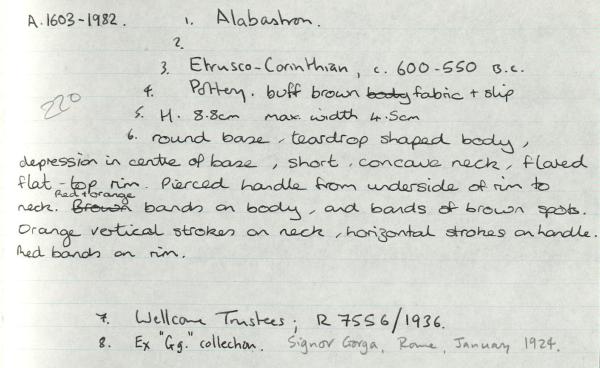 A.1603-1982. 1. Alabastron.
2.
3. Etrusco-Corinthian, c. 600-550 B.C.
220
4. Pottery. buff brown body fabric + slip
5. H. 8.8cm max. width 4.5cm
6. round base, teardrop shaped body,
depression in centre of base, short, concave neck, flared
flat-top rim. Pierced handle from underside of rim to
Red + orange
neck. Brown bands on body, and bands of brown spots.
Orange vertical strokes on neck, horizontal strokes on handle.
Red bands on rim.
7. Wellcome Trustees; R 7556/1936.
8. Ex "Gg." collection. Signor Gorga, Rome, January 1924.